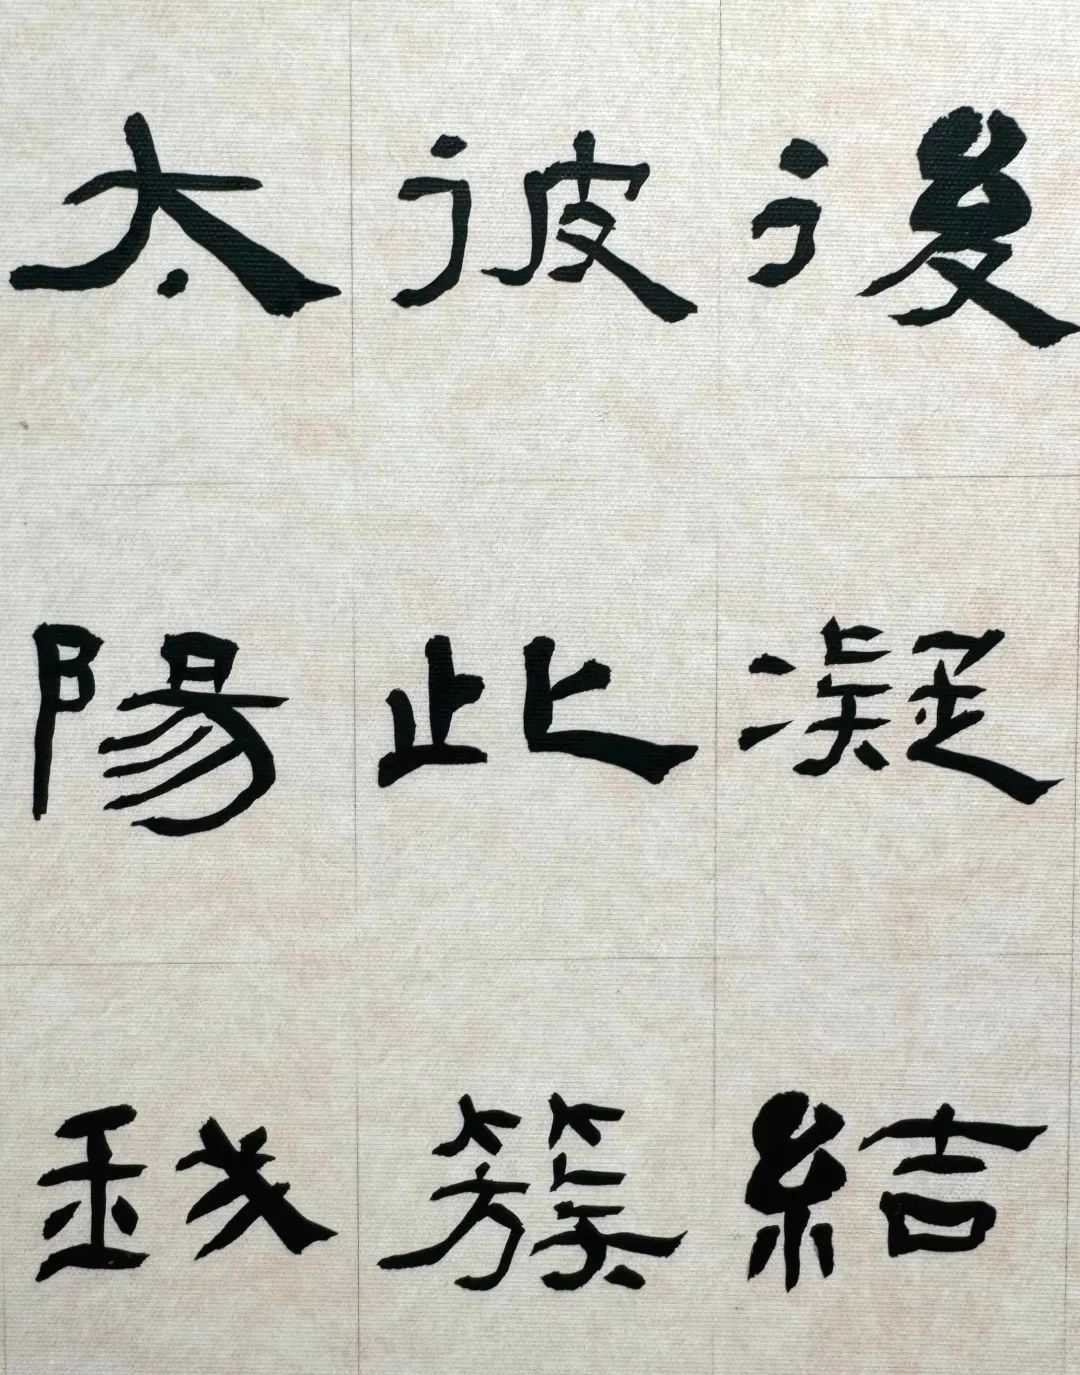 後凝結
彼此簇
太陽